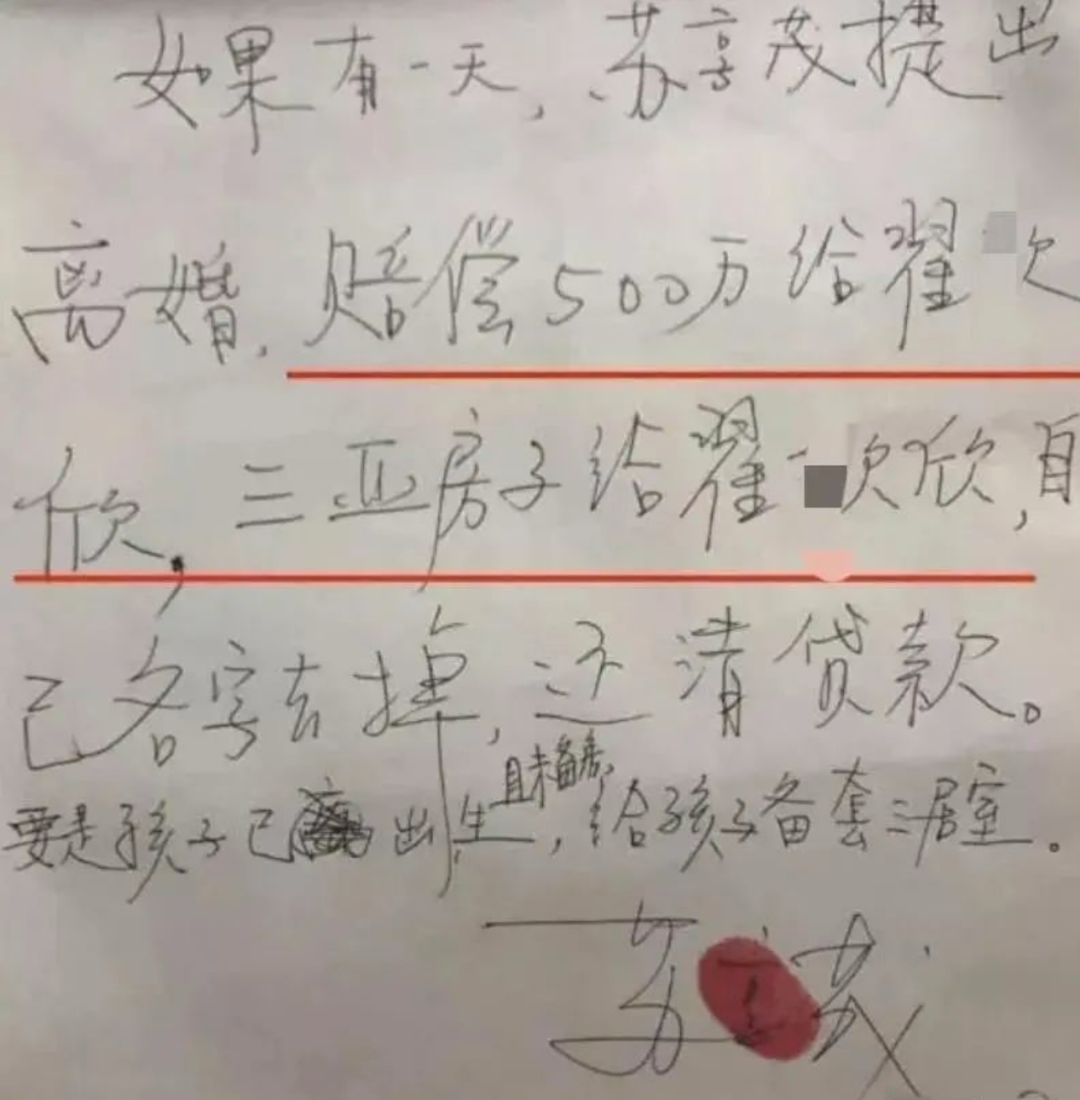 如果有一天,苏享茂提出
离婚,赔偿500万给翟欠
欣,三亚房子给翟欠欣,自
己名字去掉,还清贷款。
且未备房,
要是孩子已出生,给孩子备套三居室。
苏享茂